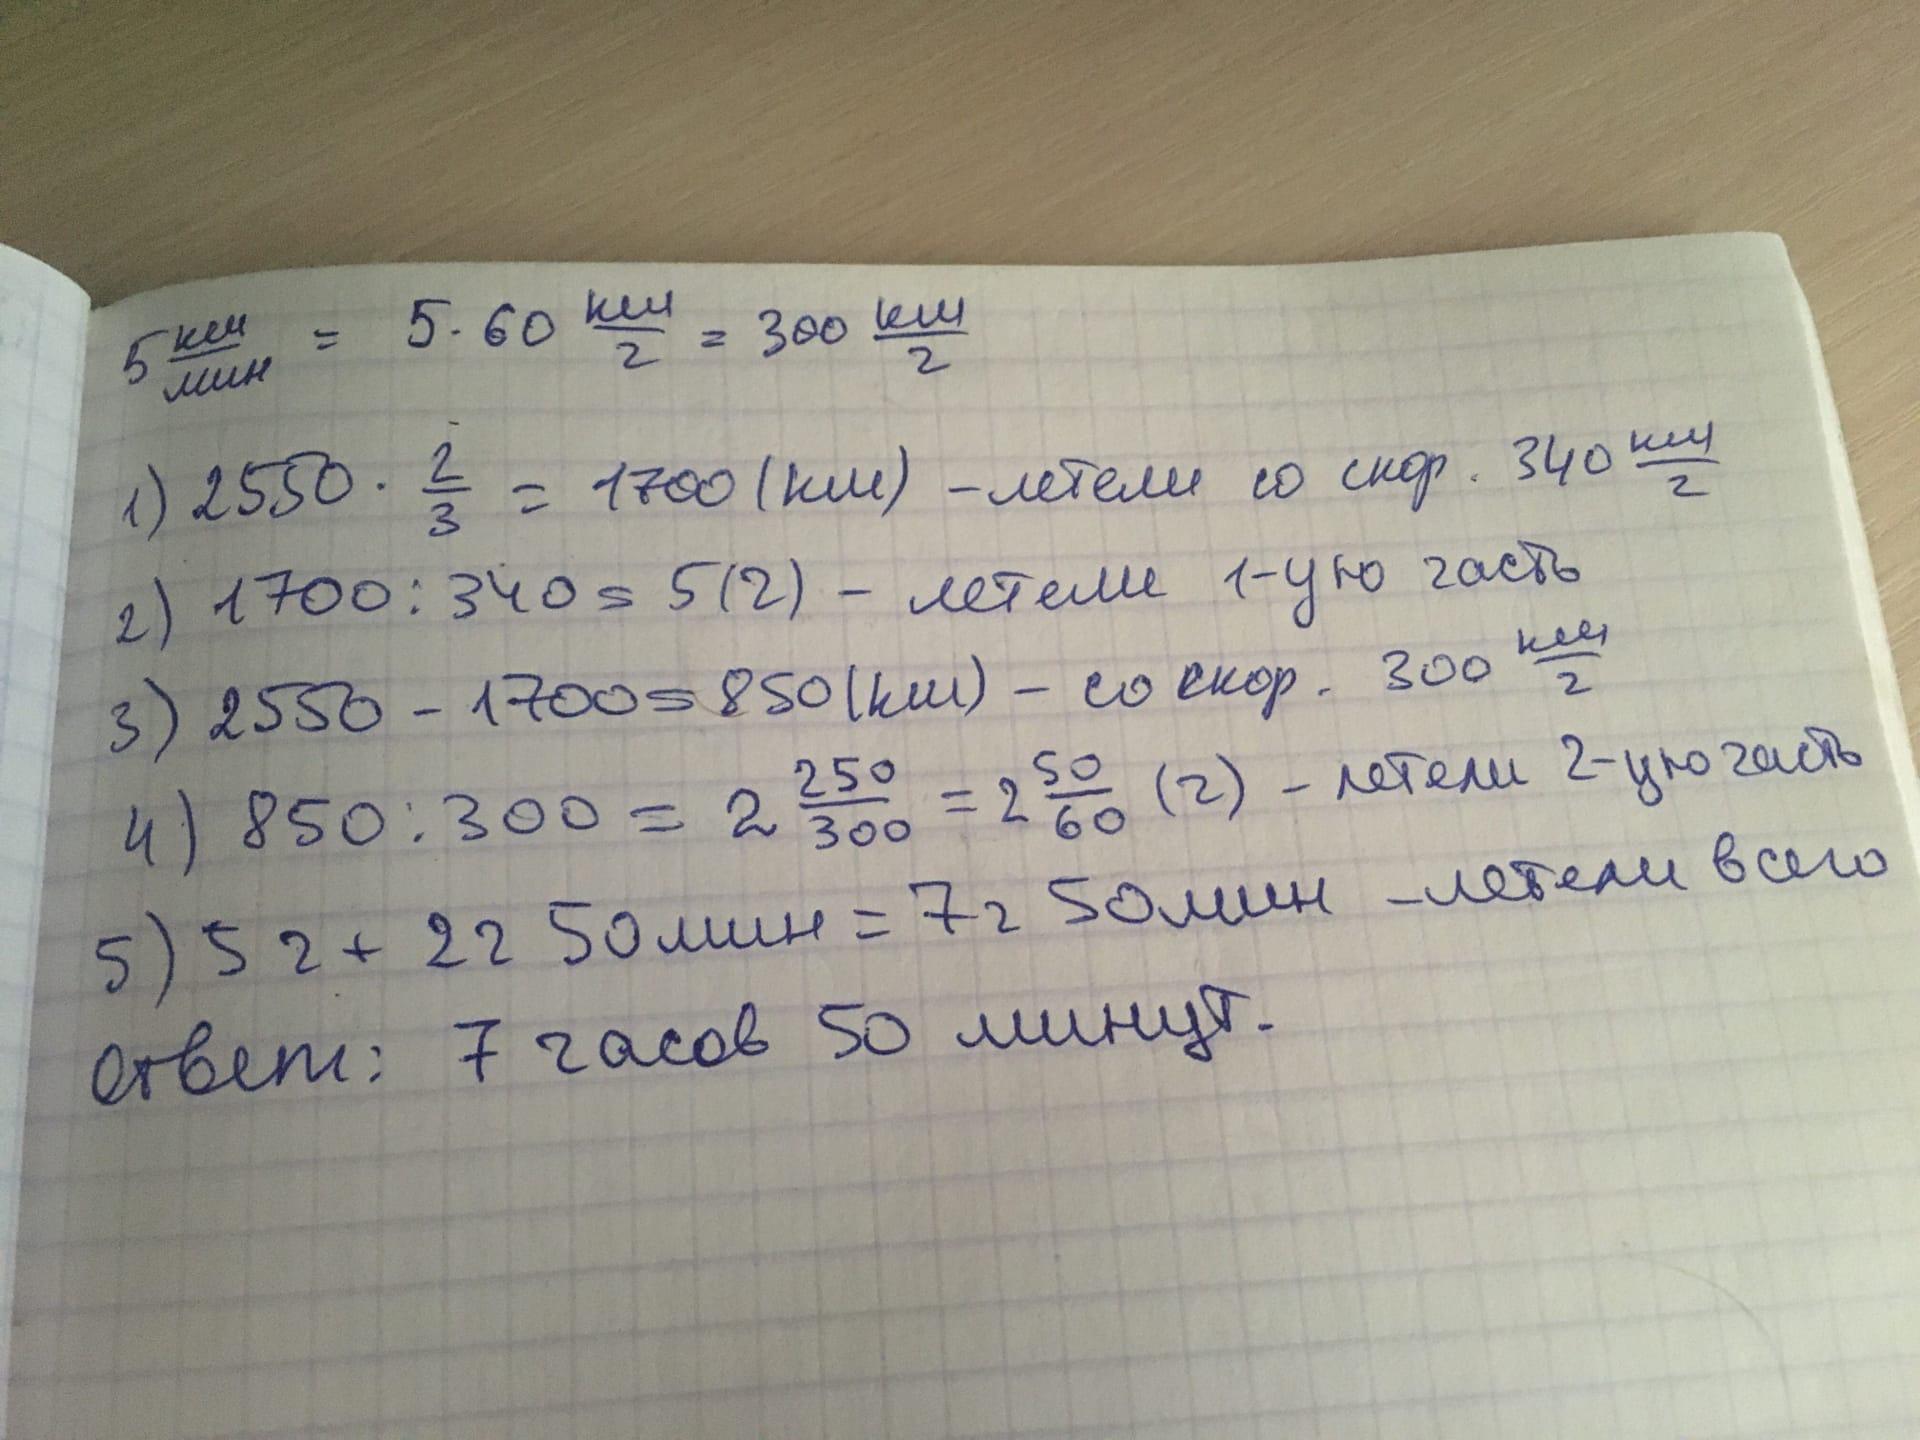 5 км/мин = 5 · 60 км/ч = 300 км/ч
1) 2550 · 2/3 = 1700 (км) – летели со скор. 340 км/ч
2) 1700 : 340 = 5 (ч) – летели 1-ую часть
3) 2550 – 1700 = 850 (км) – со скор. 300 км/ч
4) 850 : 300 = 2 250/300 = 2 50/60 (ч) – летели 2-ую часть
5) 5 ч + 2 ч 50 мин = 7 ч 50 мин – летели всего
Ответ: 7 часов 50 минут.